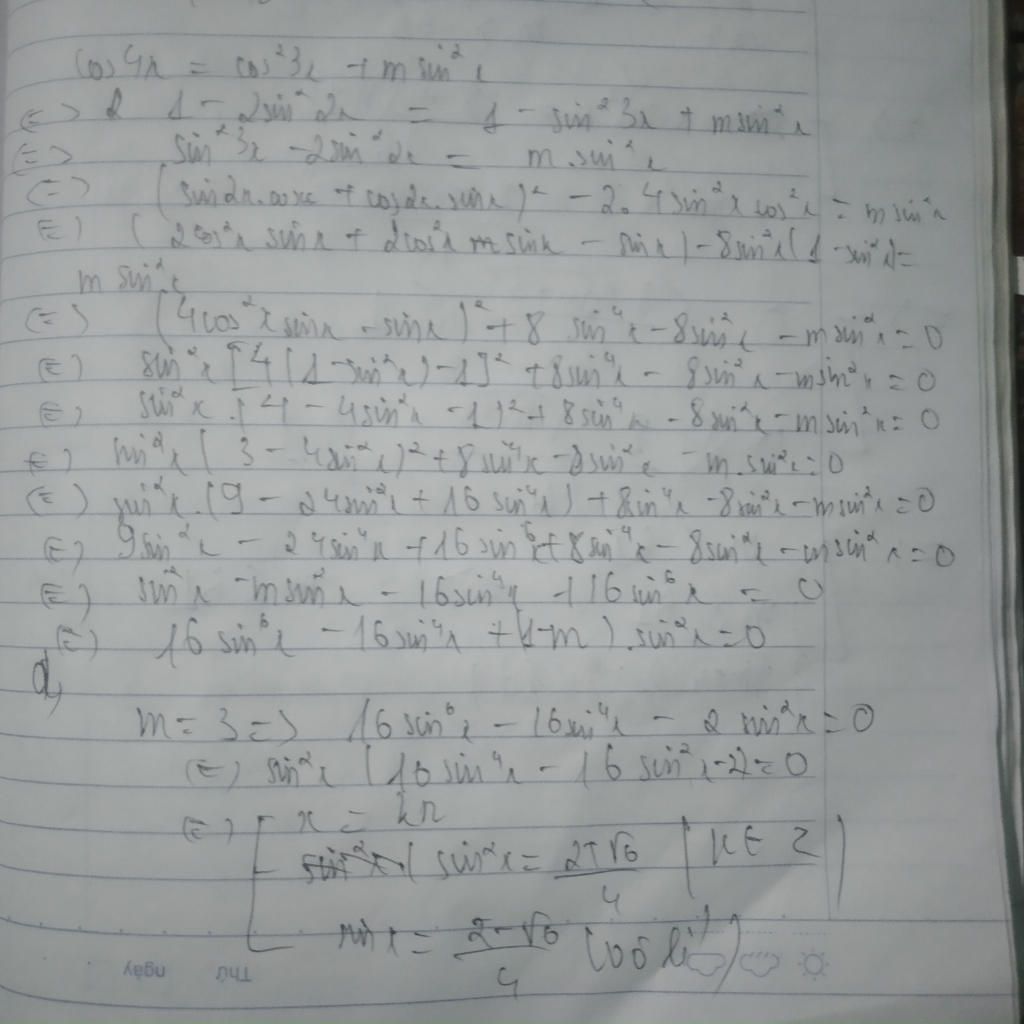 cos4x = cos²3x + m sin²x
(=) 1 - 2sin²2x = 1 - sin²3x + msin²x
(=) sin²3x - 2sin²2x = m.sin²x
(=) (sin2x.cosx + cos2x.sinx)² - 2.4sin²x cos²x = msin²x
(=) (2cos²x sinx + 2cos²x sinx - sinx) - 8sin²x(1 - sin²x) =
m sin²x
(=) (4cos²x sinx - sinx)² + 8 sin⁴x - 8sin²x - msin²x = 0
(=) sin²x [4(1 - sin²x) - 1]² + 8sin⁴x - 8sin²x - msin²x = 0
(=) sin²x.(4 - 4sin²x - 1)² + 8sin⁴x - 8sin²x - m sin²x = 0
(=) sin²x (3 - 4sin²x)² + 8sin⁴x - 8sin²x - m.sin²x = 0
(=) sin²x.(9 - 24sin²x + 16sin⁴x) + 8sin⁴x - 8sin²x - msin²x = 0
(=) 9sin²x - 24sin⁴x + 16sin⁶x + 8sin⁴x - 8sin²x - msin²x = 0
(=) sin²x - msin²x - 16sin⁴x + 16sin⁶x = 0
(=) 16 sin⁶x - 16sin⁴x + (1-m).sin²x = 0
a,
m = 3 => 16sin⁶x - 16sin⁴x - 2 sin²x = 0
(=) sin²x (16sin⁴x - 16 sin²x - 2) = 0
(=) [ x = kπ
sin²x = (2+√6)/4 (k ∈ Z)
sin x = (2-√6)/4 (vô lí)
Thứ ngày